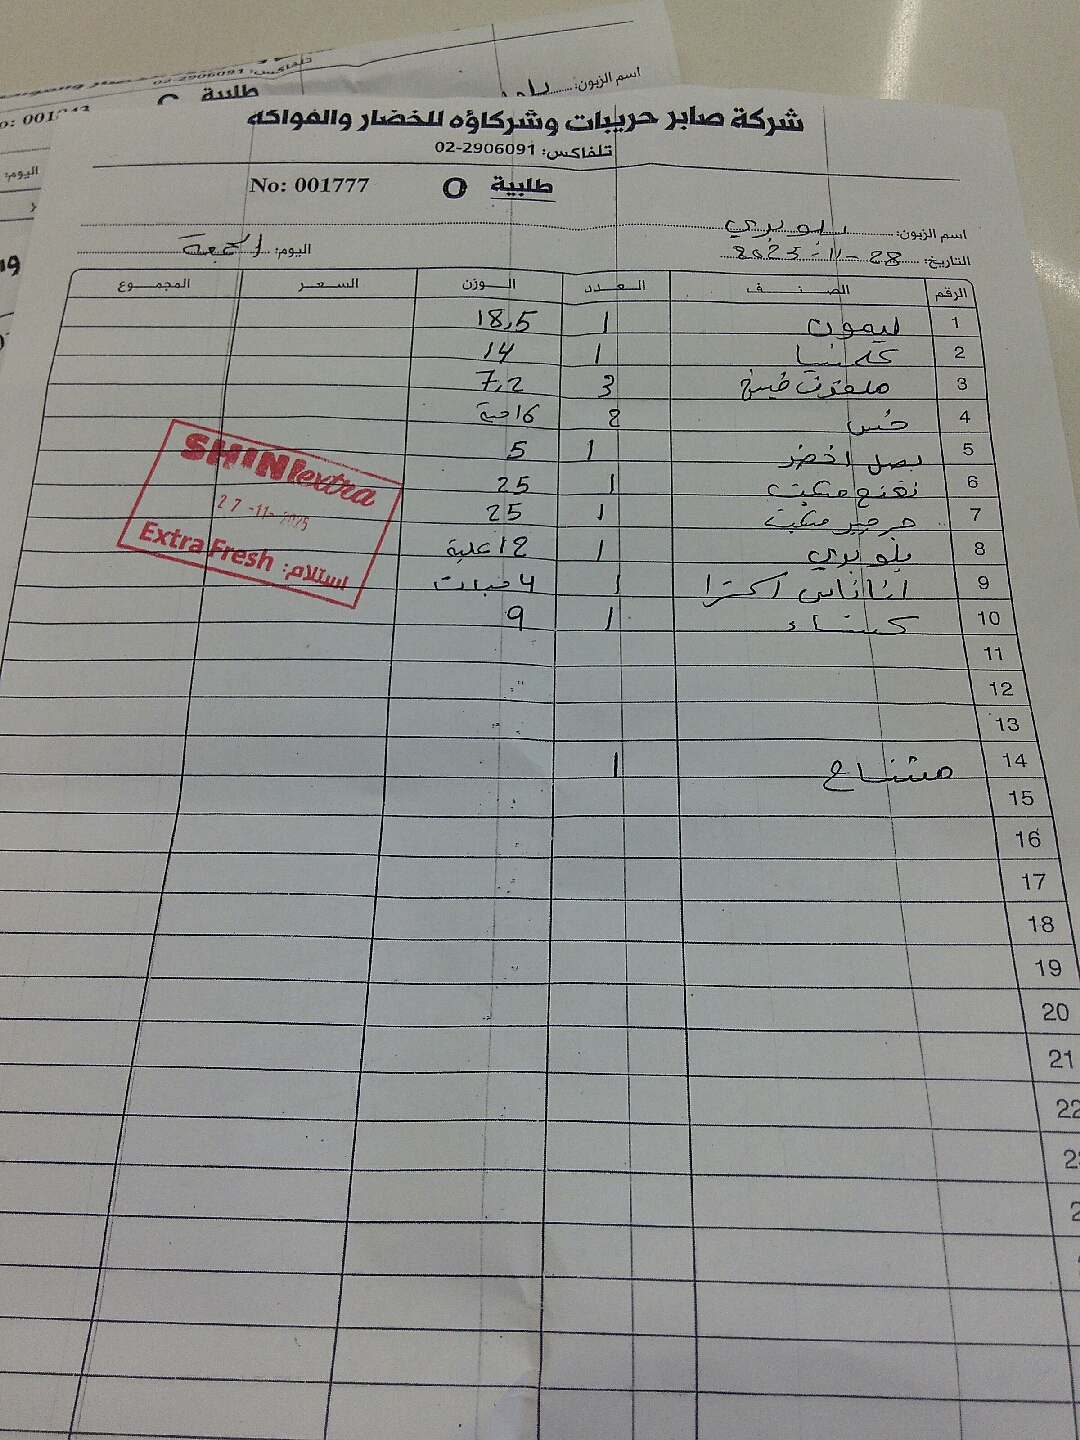 تلفاكس: 02-2906091
اسم الزبون:
طلبية
اليوم:
شركة صابر حريبات وشركاؤه للخضار والفواكه
تلفاكس: 02-2906091
طلبية O No: 001777
اسم الزبون: بلو بري
التاريخ: 28-11-2025 اليوم: الجمعة
الرقم الصنف العدد الوزن السعر المجموع
1 ليمون 1 18,5
2 كلمنتينا 1 14
3 ملفوف 3 7,2
4 خس 2 16 حبة
5 بصل اخضر 1 5
6 نعنع مكبت 1 25
7 جرجير مكبت 1 25
8 بلو بري 1 12 علبة
9 اناناس اكسترا 1 4 حبات
10 كستناء 1 9
11
12
13
14 مشتاح 1
15
16
17
18
19
20
21
22
SHINIextra
27-11-2025
استلام: Extra Fresh